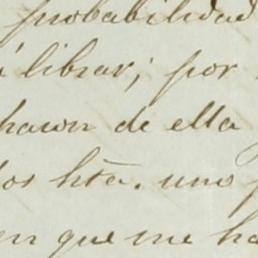 probabilidad
á librar; por
hacen de ella
los hta. uno
en que me ha